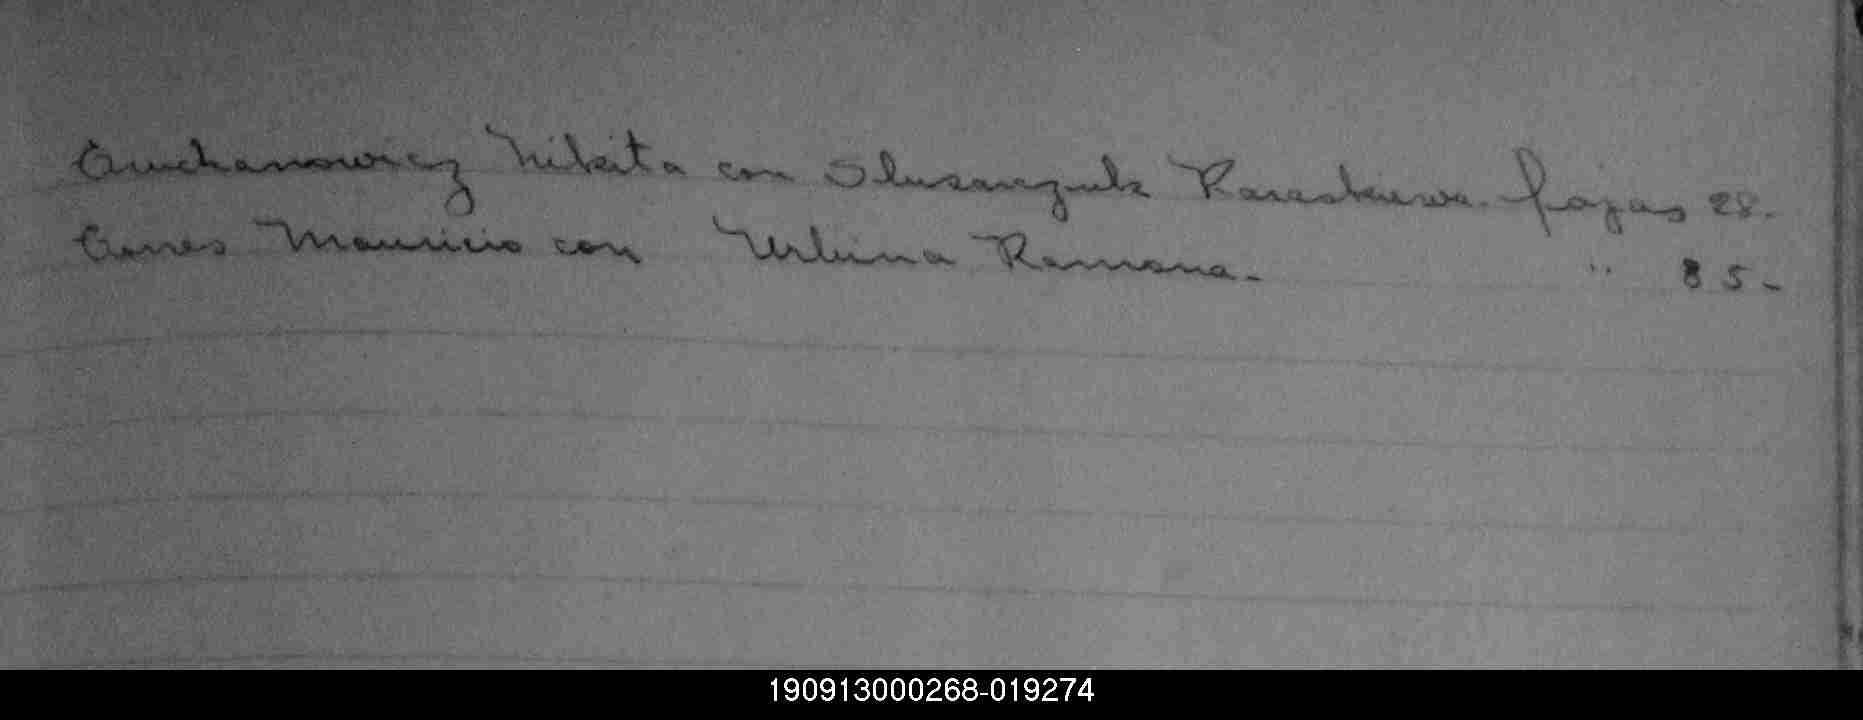 Auchanowicz Nikita con Slusarczuk Paraskiewa. fojas 28.
Aones Mauricio con Urbina Ramona. " 85-
190913000268-019274